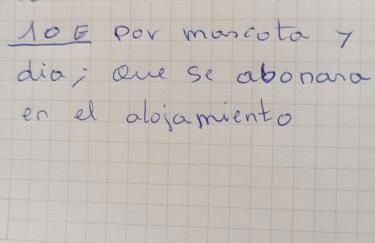 10 € por mascota y
dia; que se abonara
en el alojamiento